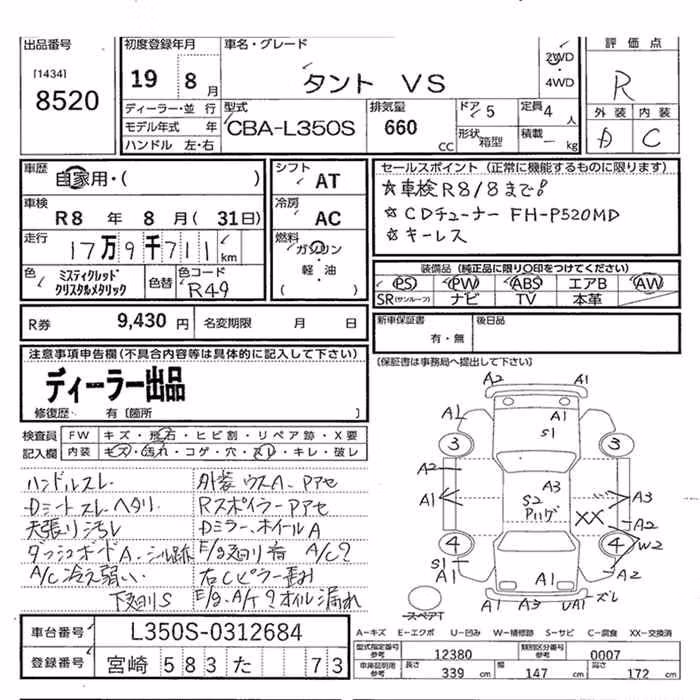 出品番号 初度登録年月 車名・グレード 評価点
[1434]
8520
19 8月 タント VS 2WD 4WD R
外装 内装
A C
ディーラー・並行 型式 排気量 ドア 5 定員 4人
モデル年式 年 CBA-L350S 660 CC 形状 箱型 積載 - kg
ハンドル 左・右
車歴 自家用・( )
シフト AT
セールスポイント (正常に機能するものに限ります)
☆車検R8/8まで!
☆CDチューナー FH-P520MD
☆キーレス
車検 R8年 8月 (31日)
冷房 AC
走行 17万9千711km
燃料 ガソリン・軽・油 ( )
色 ミスティクレッドクリスタルメタリック 色替 色コード R49
装備品 (純正品に限り○印をつけてください)
PS PW ABS エアB AW
SR(サンルーフ) ナビ TV 本革
R券 9,430円 名変期限 月 日
新車保証書 有・無 後日品
(保証書は事務局へ提出して下さい)
注意事項申告欄(不具合内容等は具体的に記入して下さい)
ディーラー出品
修復歴・ 有〔箇所 〕
検査員記入欄
FW キズ・飛石・ヒビ割・リペア跡・X要
内装 キズ・汚れ・コゲ・穴・スレ・キレ・破レ
ハンドルスレ 外装ウスA、Pアセ
Dシートスレ ヘタリ RスポイラーPアセ
天張り汚レ Dミラー、ホイールA
ダッシュボードA、シール跡 E/g廻り音 A/C?
A/C冷え弱い 右Cピラー歪み
下廻りS E/g、A/T?オイル漏れ
A2 A1
A1 A1
S1
3 3
A2
A1 S2 A3
Pハゲ
XX A2
4 4 W2
S1
A1 A1 A2
スペアT
A1 UA1 ズレ
車台番号 L350S-0312684
登録番号 宮崎 583 た 73
A-キズ E-エクボ U-凹み W-補修跡 S-サビ C-腐食 XX-交換済
型式指定番号 12380 類別区分番号 0007
車庫証明用参考 長さ 339 cm 幅 147 cm 高さ 172 cm